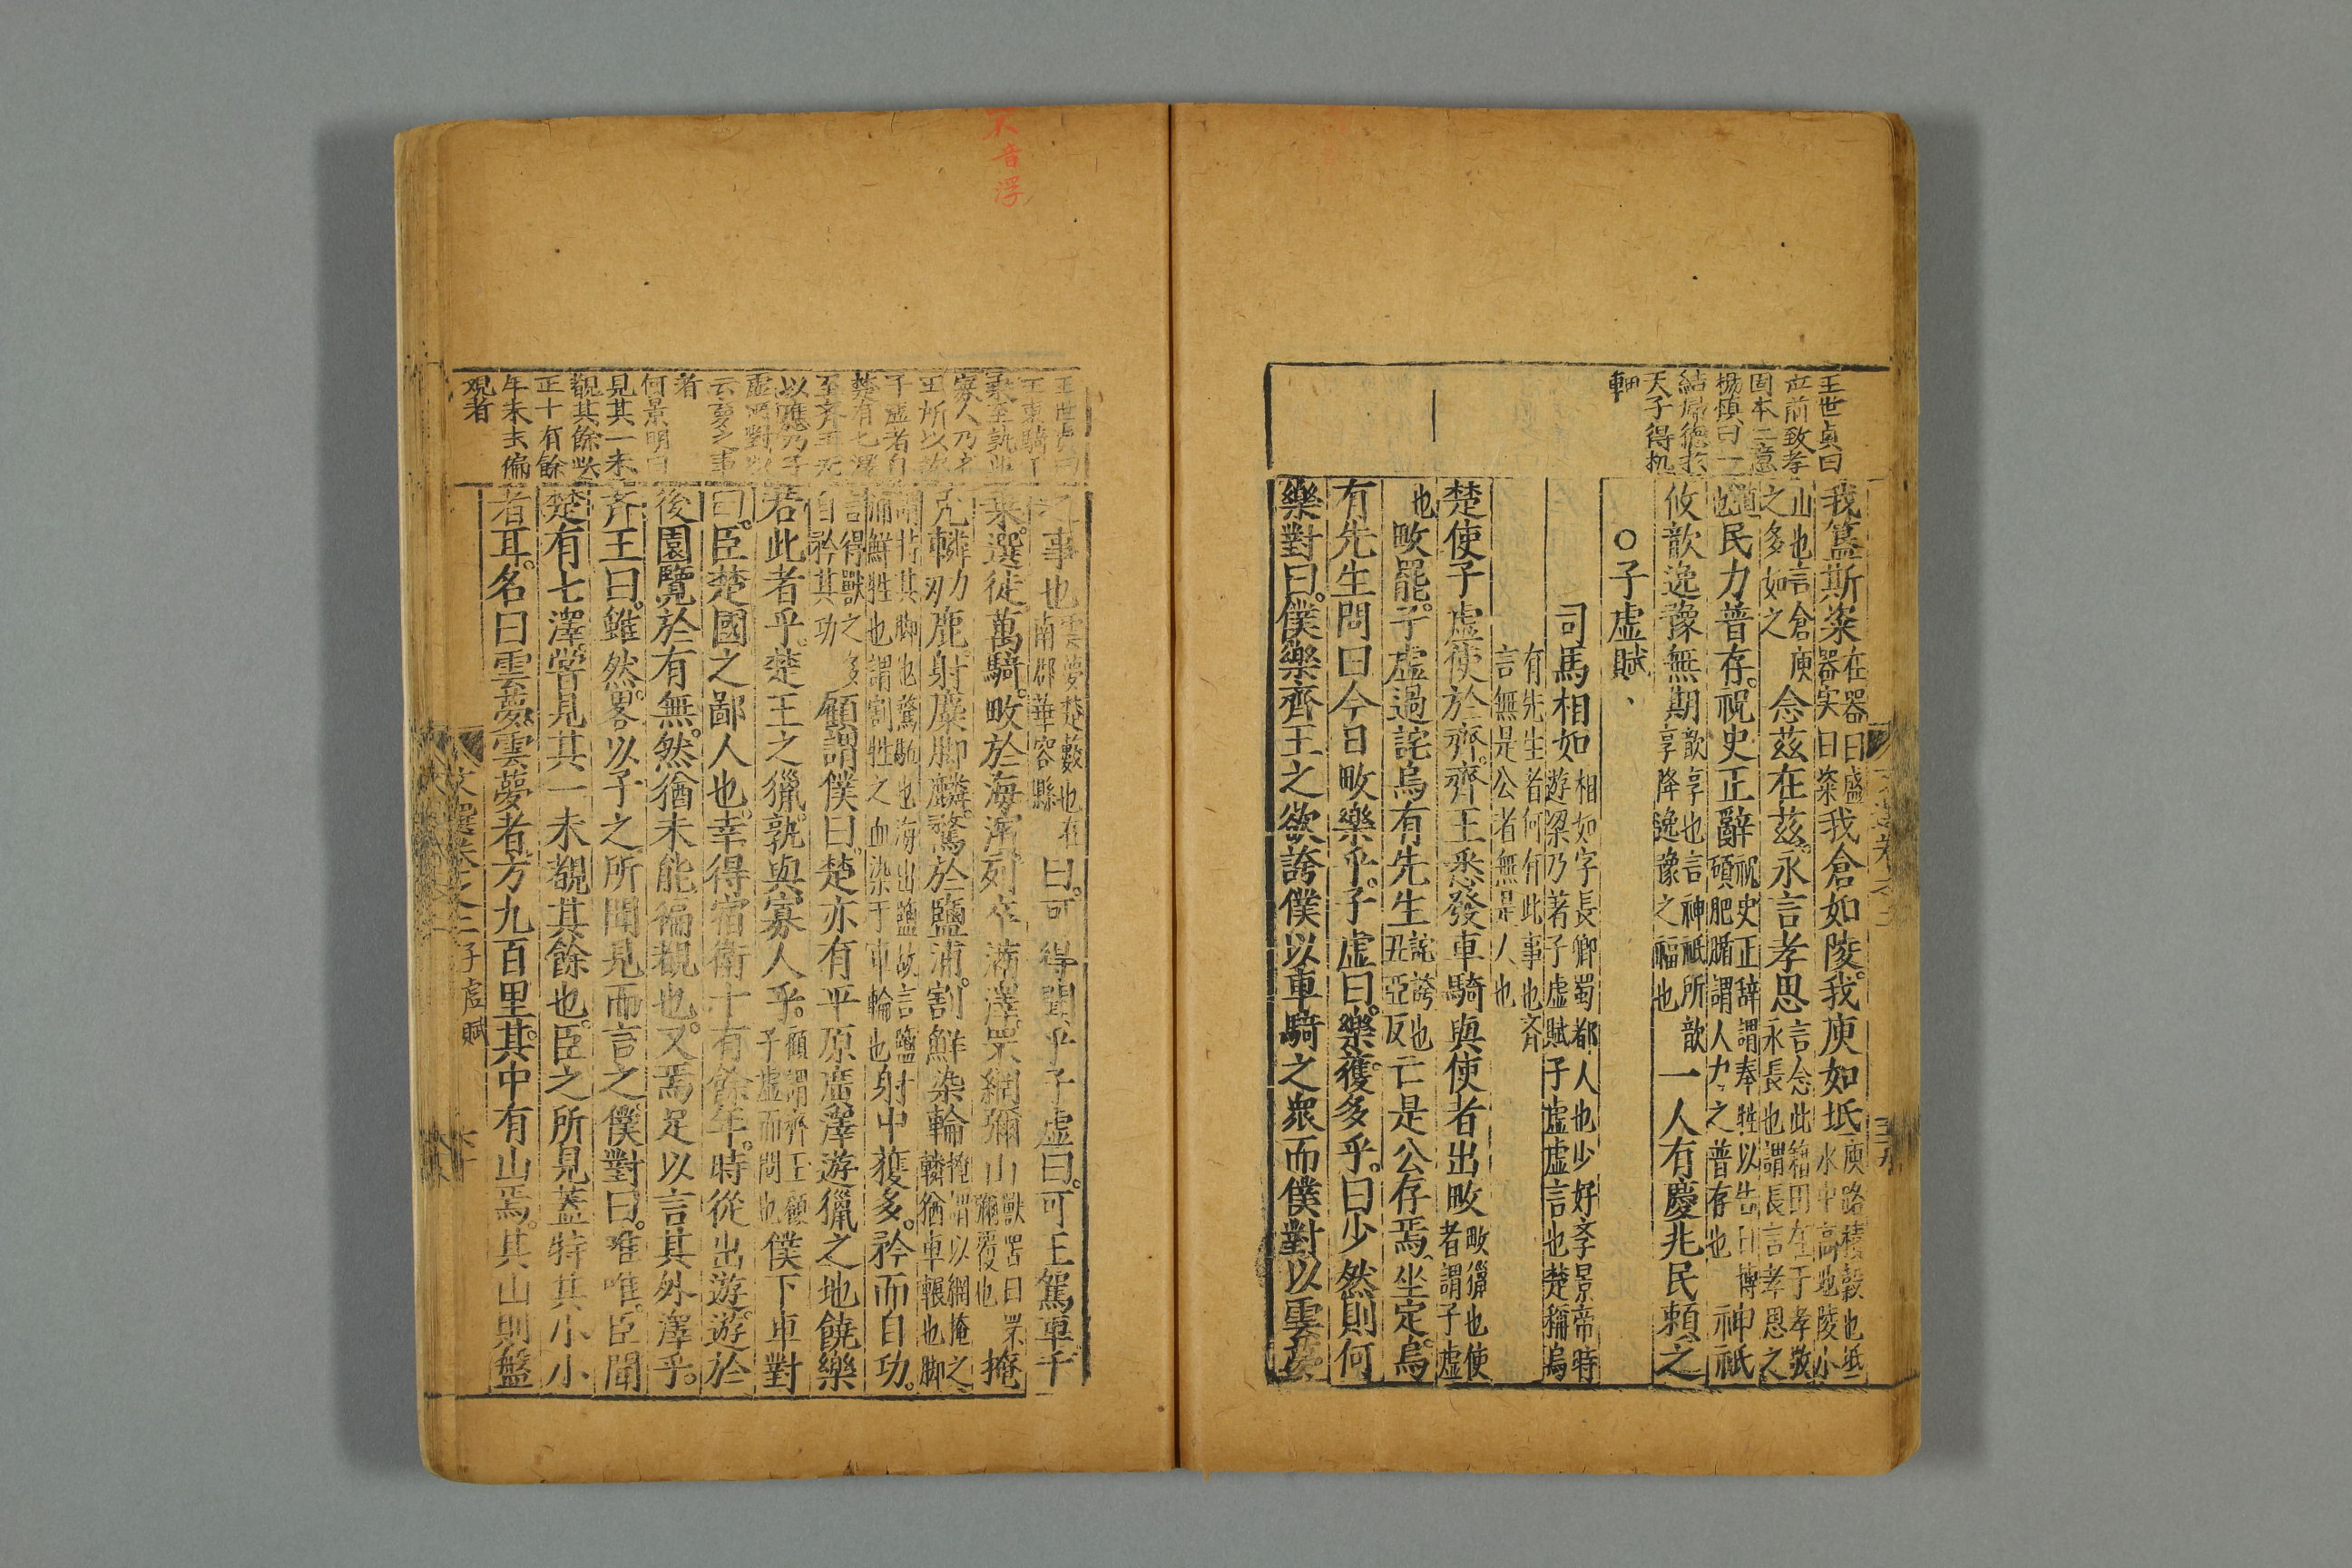 王世貞曰
應前致孝
固本二意
楊慎曰
結歸德於
天子得
軸
我簋斯粢在器曰盛器实曰粢我倉如陵。我庾如坻庾路積穀也坻水中高地陵小
山也言倉庾之多如之念茲在茲。永言孝思言念此籍田在于孝敬永長也謂長言孝思之
道也民力普存。祝史正辭祝史正辞謂奉牲以告曰博碩肥腯謂人力之普存也神祇
攸歆逸豫無期歆享也言神祇所歆享降逸豫之福也一人有慶兆民賴之
○子虛賦、
司馬相如相如字長卿蜀都人也少好文景帝時遊梁乃著子虛賦子虛虛言也楚稱烏
有先生者何有此事也齐言無是公者無是人也
楚使子虛使於齊。齊王悉發車騎與使者出畋畋獵也使者謂子虛
也畋罷。子虛過詫烏有先生詫誇也丑亞反亡是公存焉。坐定。烏
有先生問曰今日畋樂乎。子虛曰。樂。獲多乎。曰少然則何
樂對曰。僕樂齊王之欲誇僕以車騎之衆而僕對以雲夢
王世貞曰
王車騎千
乘至孰與
寡人乃者
王所以誇
子虛者自
楚有七澤
至齊王所
以應乃子
虛所對以
云夢之事
者
何景明曰
見其一未
覩其餘與
正十有餘
年未未偏
观者
之事也雲夢楚藪也在南郡華容縣曰。可得聞乎子虛曰。可王駕車千
乘。選徒萬騎。畋於海濱列卒滿澤。罘網彌山獸罟曰罘彌覆也掩
兔轔力刃鹿。射麋脚麟。騖於鹽浦。割鮮染輪掩謂以網掩之轔猶車輾也脚
謂持其脚也騖馳也海出鹽故言鹽浦鮮牲也謂割牲之血染于車輪也射中獲多。矜而自功。
言得獸之多自矜其功顧謂僕曰。楚亦有平原廣澤遊獵之地饒樂
若此者乎。楚王之獵。孰與寡人乎。顧謂齐王顧子虛而問也僕下車對
曰。臣楚國之鄙人也。幸得宿衛十有餘年。時從出遊。遊於
後園覽於有無。然猶未能徧覩也。又焉足以言其外澤乎。
齐王曰。雖然。畧以子之所聞見而言之。僕對曰。唯唯。臣聞
楚有七澤。嘗見其一未覩其餘也。臣之所見蓋特其小小
者耳。名曰雲夢。雲夢者方九百里。其中有山焉。其山則盤
文選卷之三子虛賦
罘音浮